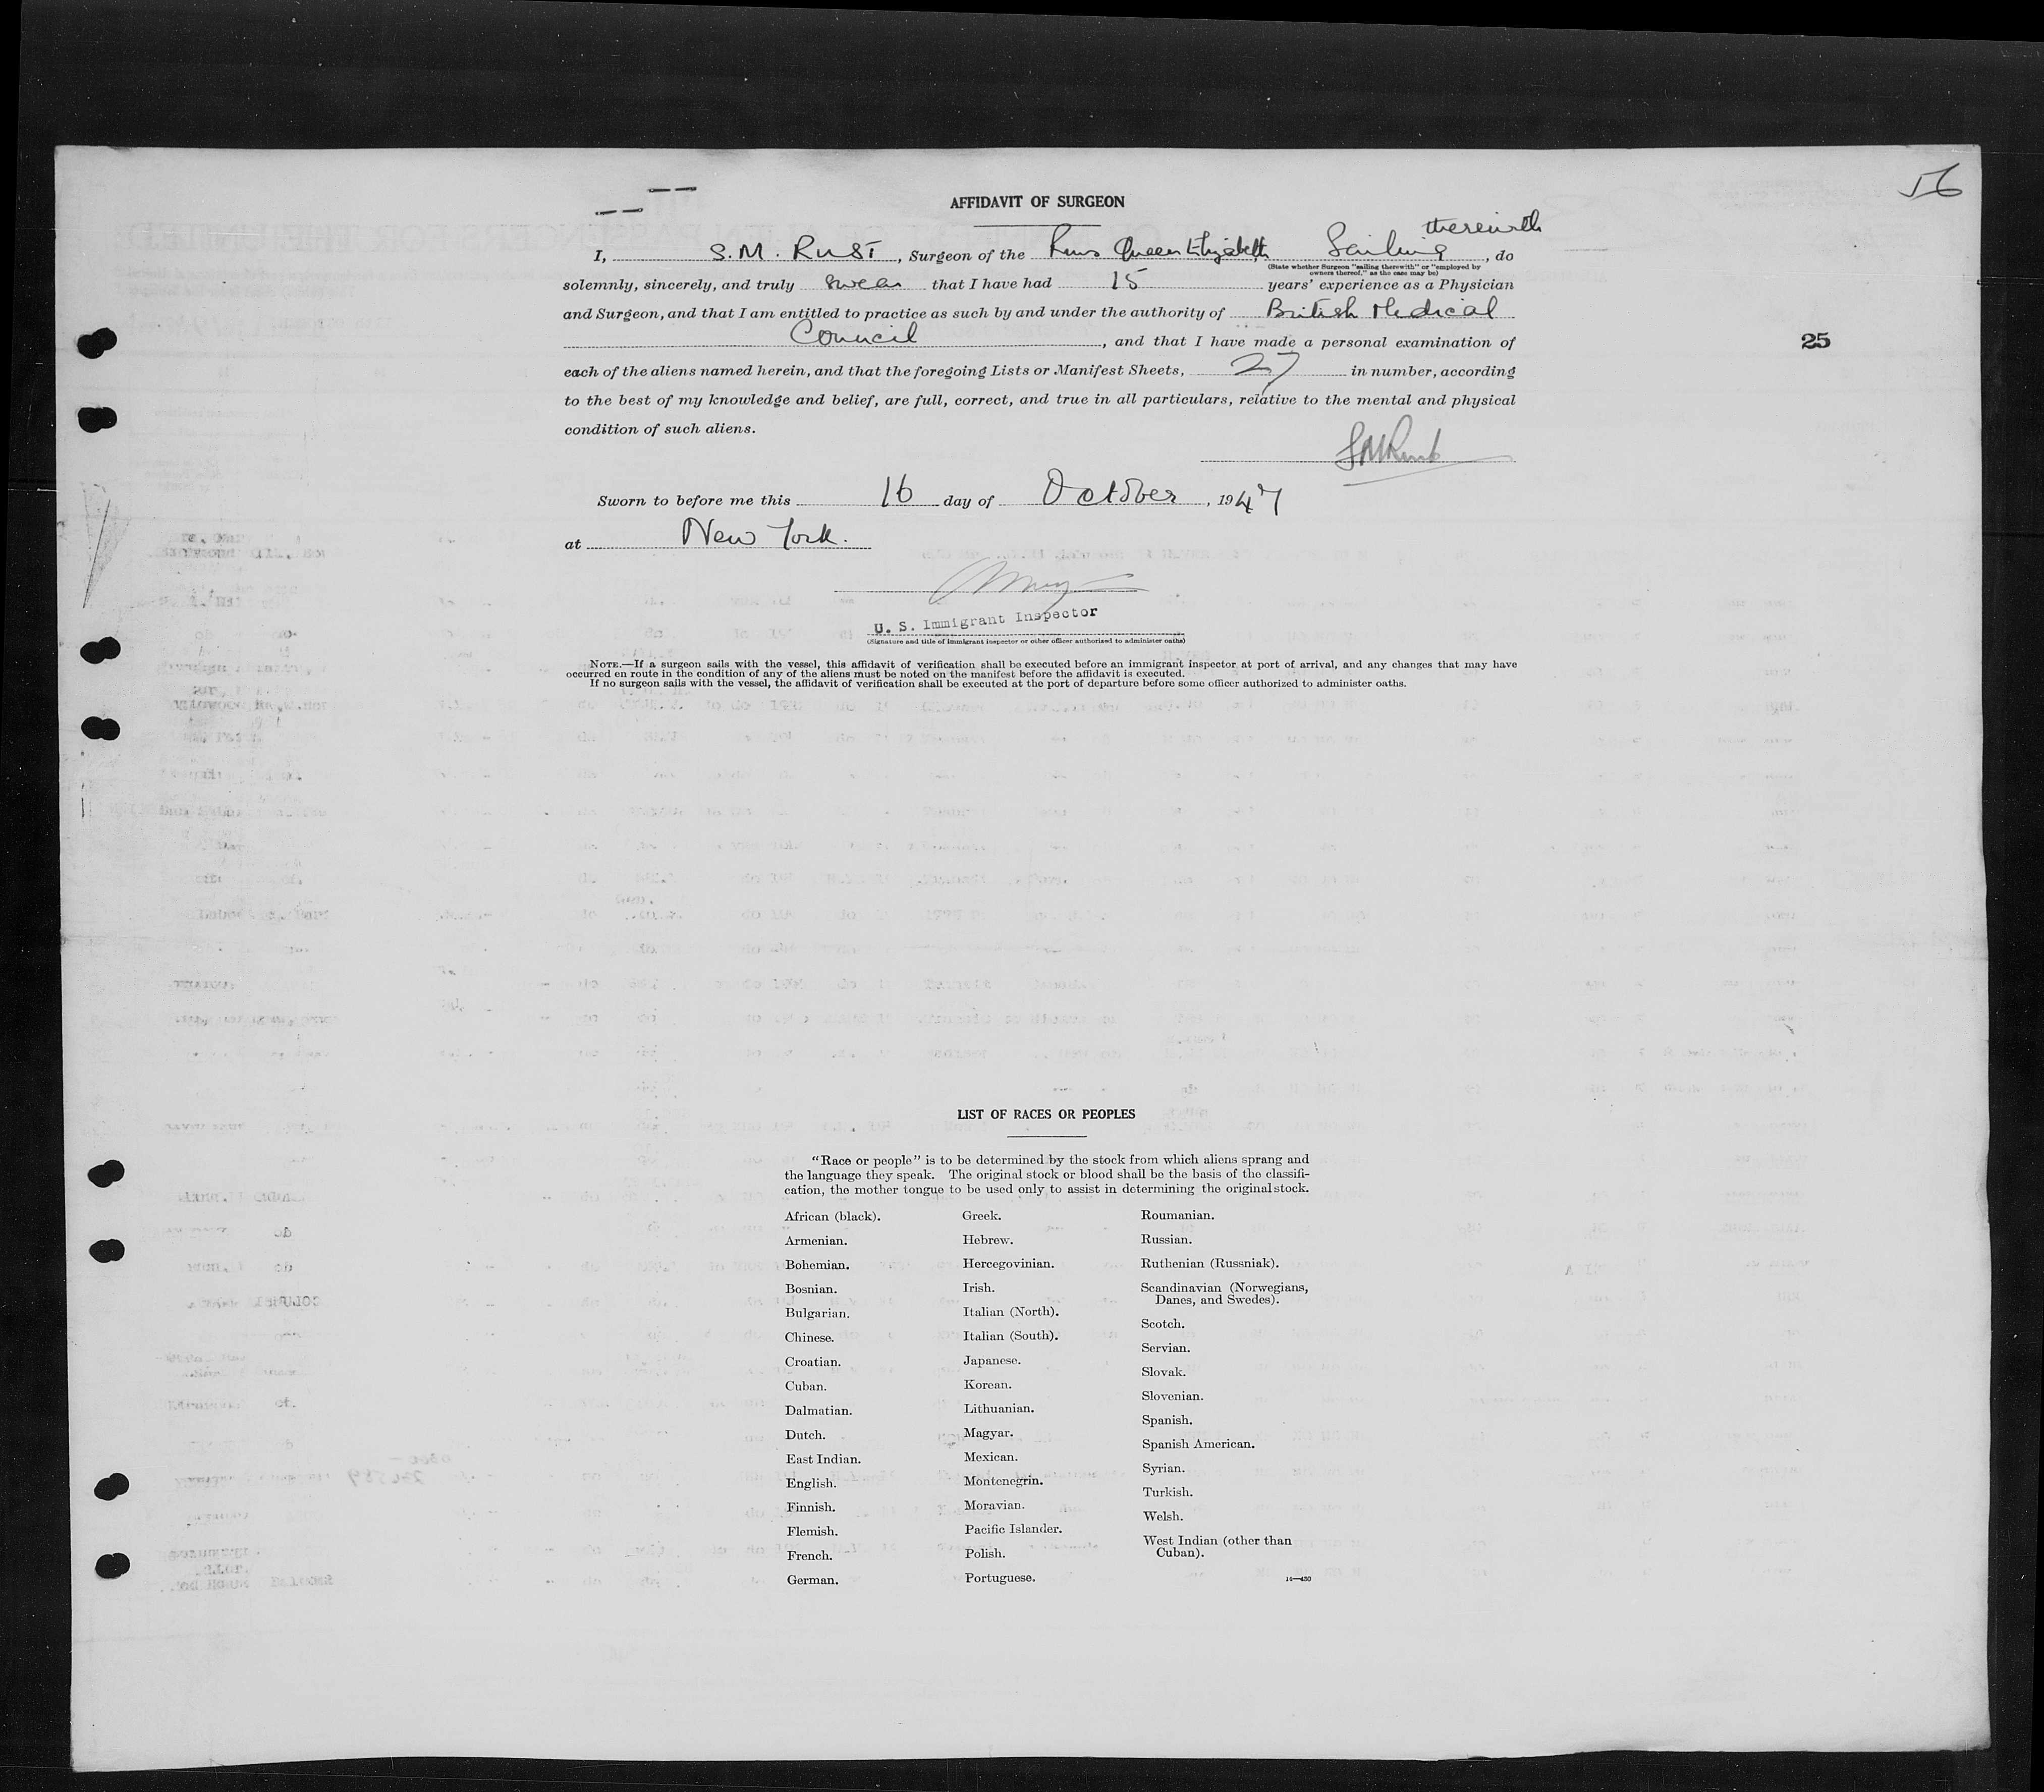 56
AFFIDAVIT OF SURGEON
I, S. M. RUST, Surgeon of the Rms Queen Elizabeth Sailing therewith, do
(State whether Surgeon "sailing therewith" or "employed by
owners thereof," as the case may be)
solemnly, sincerely, and truly swear that I have had 15 years' experience as a Physician
and Surgeon, and that I am entitled to practice as such by and under the authority of British Medical
Council, and that I have made a personal examination of
25
each of the aliens named herein, and that the foregoing Lists or Manifest Sheets, 27 in number, according
to the best of my knowledge and belief, are full, correct, and true in all particulars, relative to the mental and physical
condition of such aliens.
SMRust
Sworn to before me this 16 day of October, 1947
at New York.
U. S. Immigrant Inspector
(Signature and title of immigrant inspector or other officer authorized to administer oaths)
NOTE.—If a surgeon sails with the vessel, this affidavit of verification shall be executed before an immigrant inspector at port of arrival, and any changes that may have
occurred en route in the condition of any of the aliens must be noted on the manifest before the affidavit is executed.
If no surgeon sails with the vessel, the affidavit of verification shall be executed at the port of departure before some officer authorized to administer oaths.
LIST OF RACES OR PEOPLES
"Race or people" is to be determined by the stock from which aliens sprang and
the language they speak. The original stock or blood shall be the basis of the classifi-
cation, the mother tongue to be used only to assist in determining the original stock.
African (black).
Armenian.
Bohemian.
Bosnian.
Bulgarian.
Chinese.
Croatian.
Cuban.
Dalmatian.
Dutch.
East Indian.
English.
Finnish.
Flemish.
French.
German.
Greek.
Hebrew.
Hercegovinian.
Irish.
Italian (North).
Italian (South).
Japanese.
Korean.
Lithuanian.
Magyar.
Mexican.
Montenegrin.
Moravian.
Pacific Islander.
Polish.
Portuguese.
Roumanian.
Russian.
Ruthenian (Russniak).
Scandinavian (Norwegians,
Danes, and Swedes).
Scotch.
Servian.
Slovak.
Slovenian.
Spanish.
Spanish American.
Syrian.
Turkish.
Welsh.
West Indian (other than
Cuban).
14—430